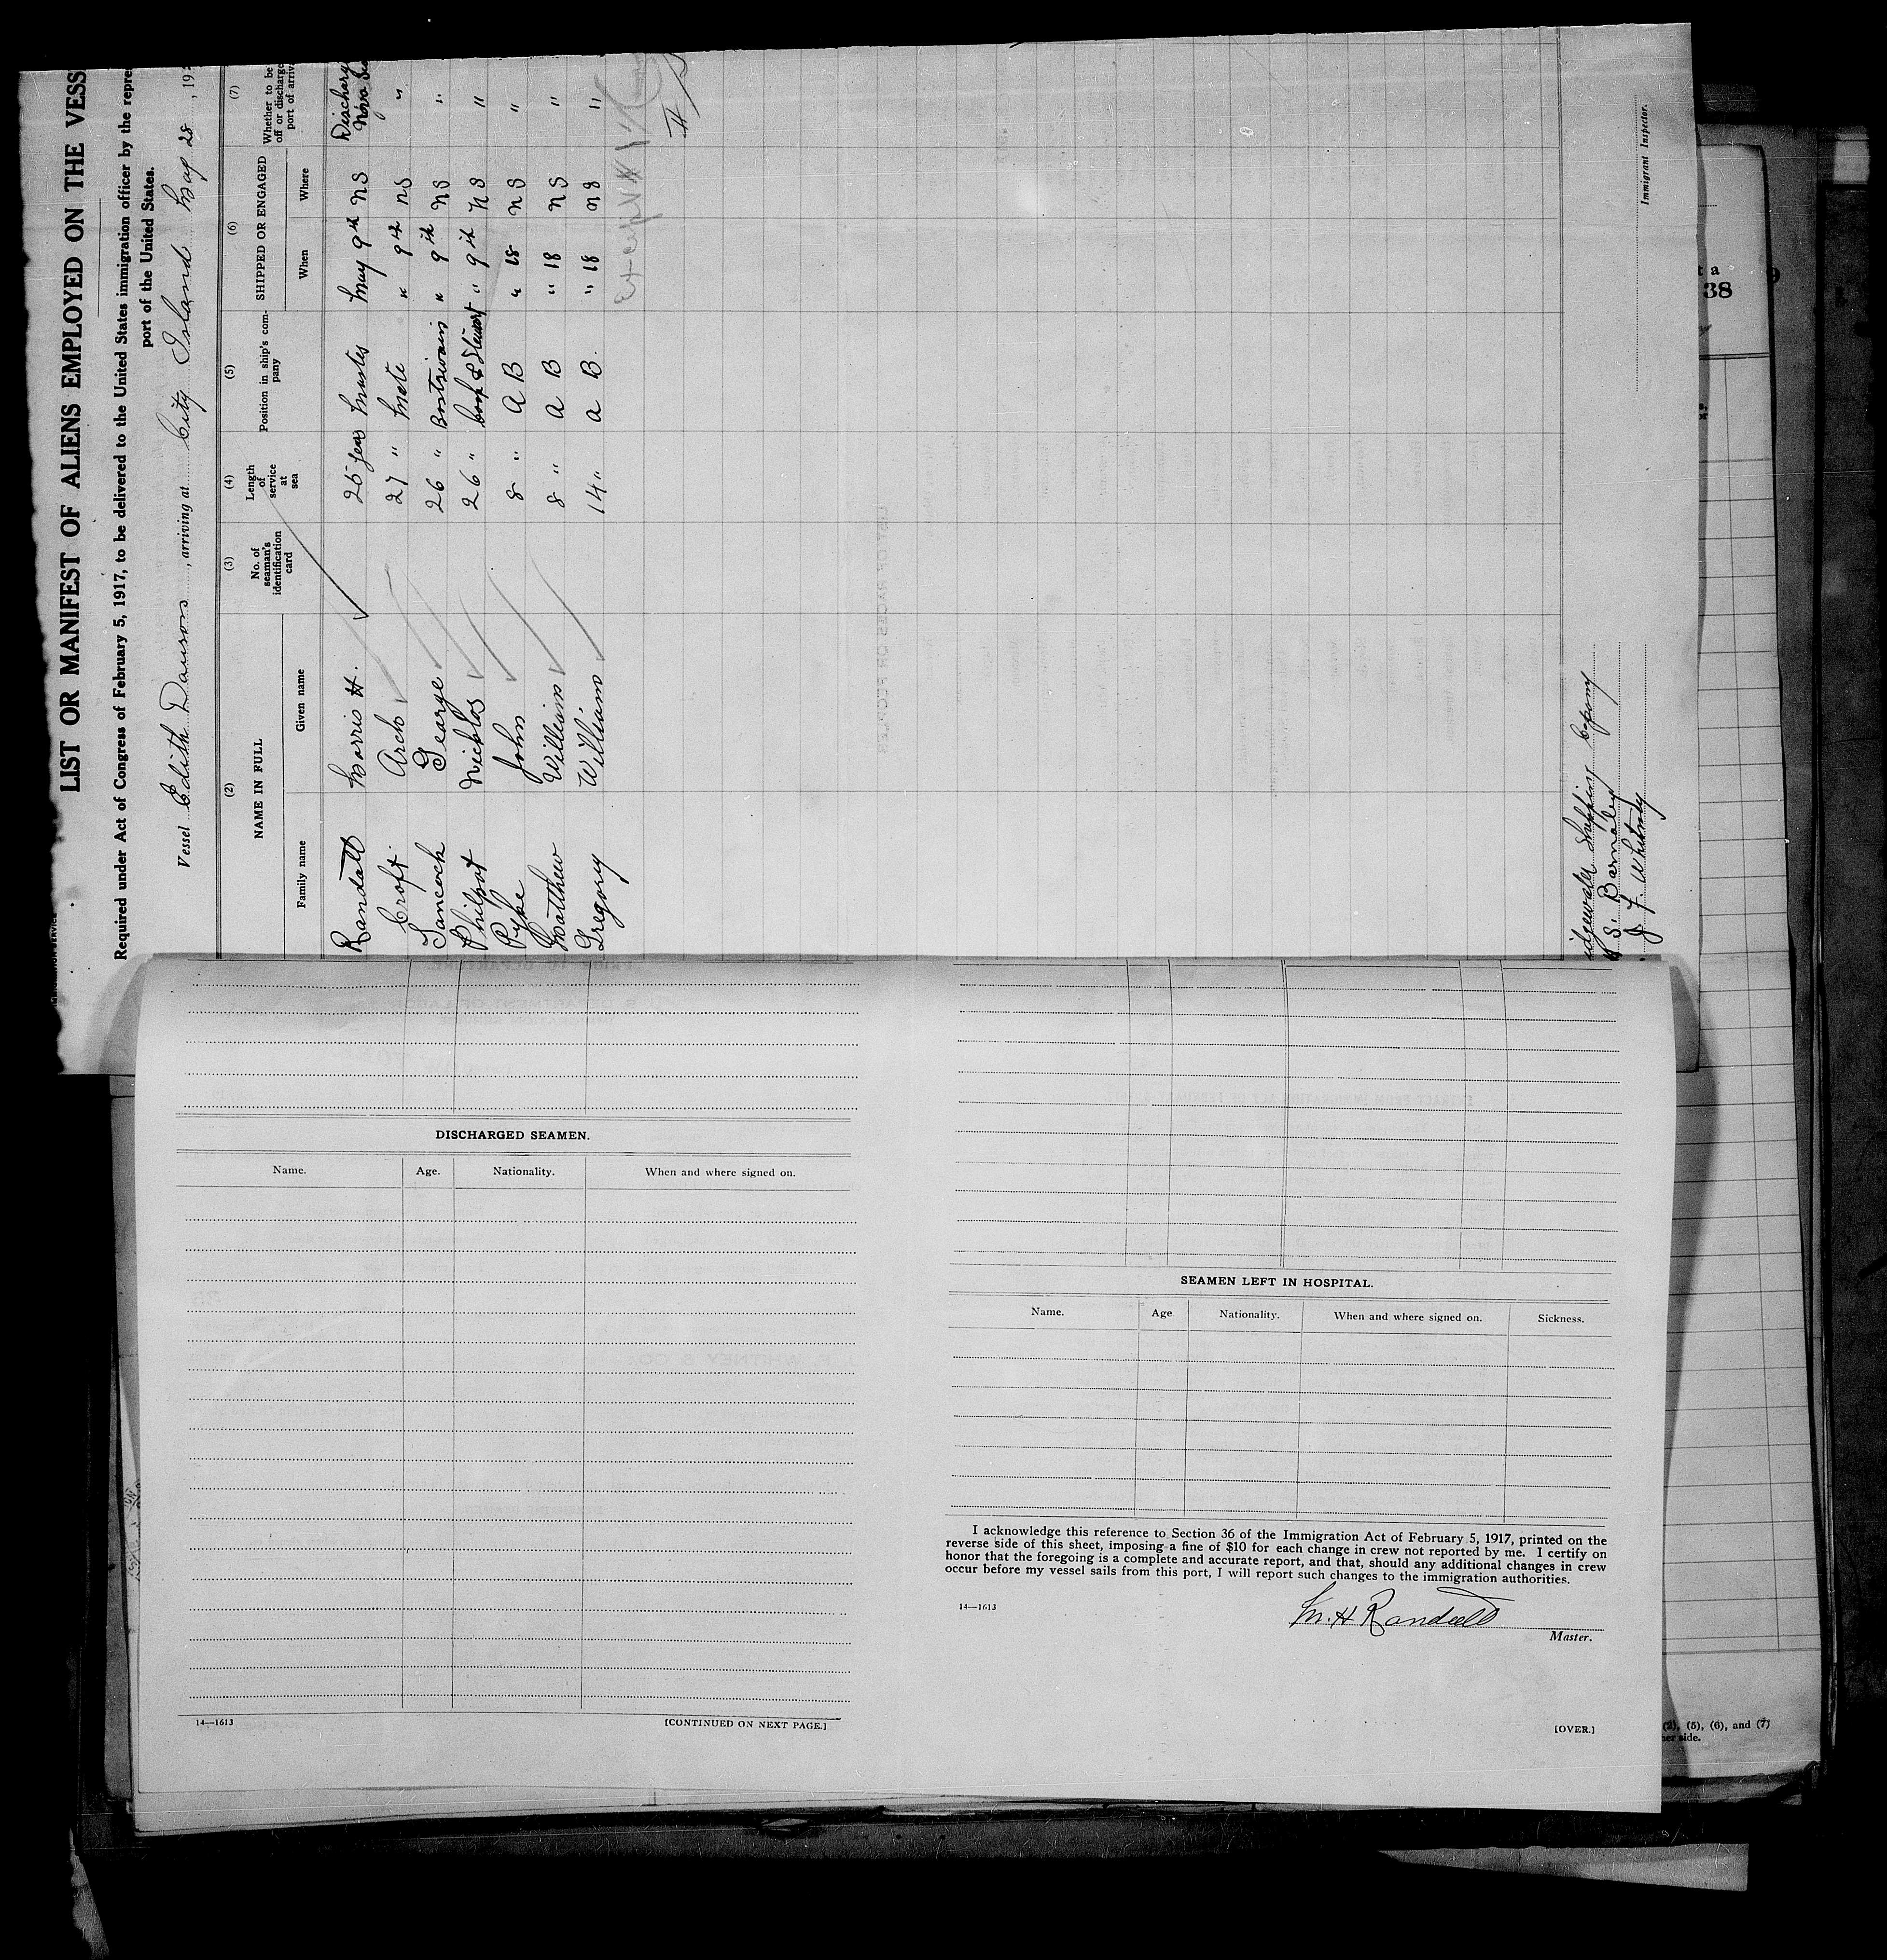 LIST OR MANIFEST OF ALIENS EMPLOYED ON THE VESS
Required under Act of Congress of February 5, 1917, to be delivered to the United States immigration officer by the repre
port of the United States.
Vessel Edith Dawson, arriving at City Island May 28, 19
(2) (3) (4) (5) (6) (7)
NAME IN FULL
Family name Given name
No. of seaman's identification card
Length of service at sea
Position in ship's company
SHIPPED OR ENGAGED
When Where
Whether to be
off or discharge
port of arriva
Randall Morris H. 25 years Master May 9th NS Discharge
Nova
Croft Arch 27 " Mate " 9th NS "
George 26 " Bostswain " 9th NS "
Philpot Nicholas 26 " Cook & Steward " 9th NS "
Pyke John 8 " A B " 18 NS "
Matthew William 8 " A B " 18 NS "
Gregory William 14 " A B. " 18 NS "
idgewater Shipping Company
S. Barnaby
J F Whitney
Immigrant Inspector.
t a
38
DISCHARGED SEAMEN.
Name. Age. Nationality. When and where signed on.
14—1613 [CONTINUED ON NEXT PAGE.]
SEAMEN LEFT IN HOSPITAL.
Name. Age Nationality. When and where signed on. Sickness.
I acknowledge this reference to Section 36 of the Immigration Act of February 5, 1917, printed on the
reverse side of this sheet, imposing a fine of $10 for each change in crew not reported by me. I certify on
honor that the foregoing is a complete and accurate report, and that, should any additional changes in crew
occur before my vessel sails from this port, I will report such changes to the immigration authorities.
14—1613
M. H Randall
Master.
[OVER.]
(2), (5), (6), and (7)
her side.